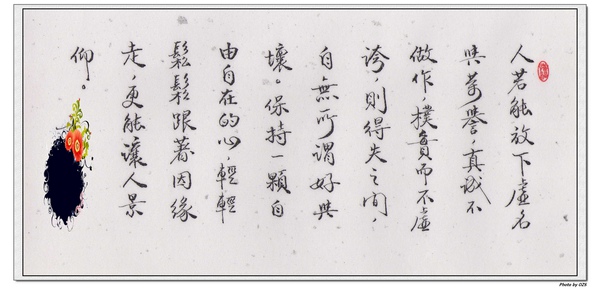 人若能放下虛名
與著譽，真誠不
做作，樸實而不虛
誇，則得失之間，
自無所謂好與
壞。保持一顆自
由自在的心，輕輕
鬆鬆跟著因緣
走，更能讓人景
仰。
Photo by OZS